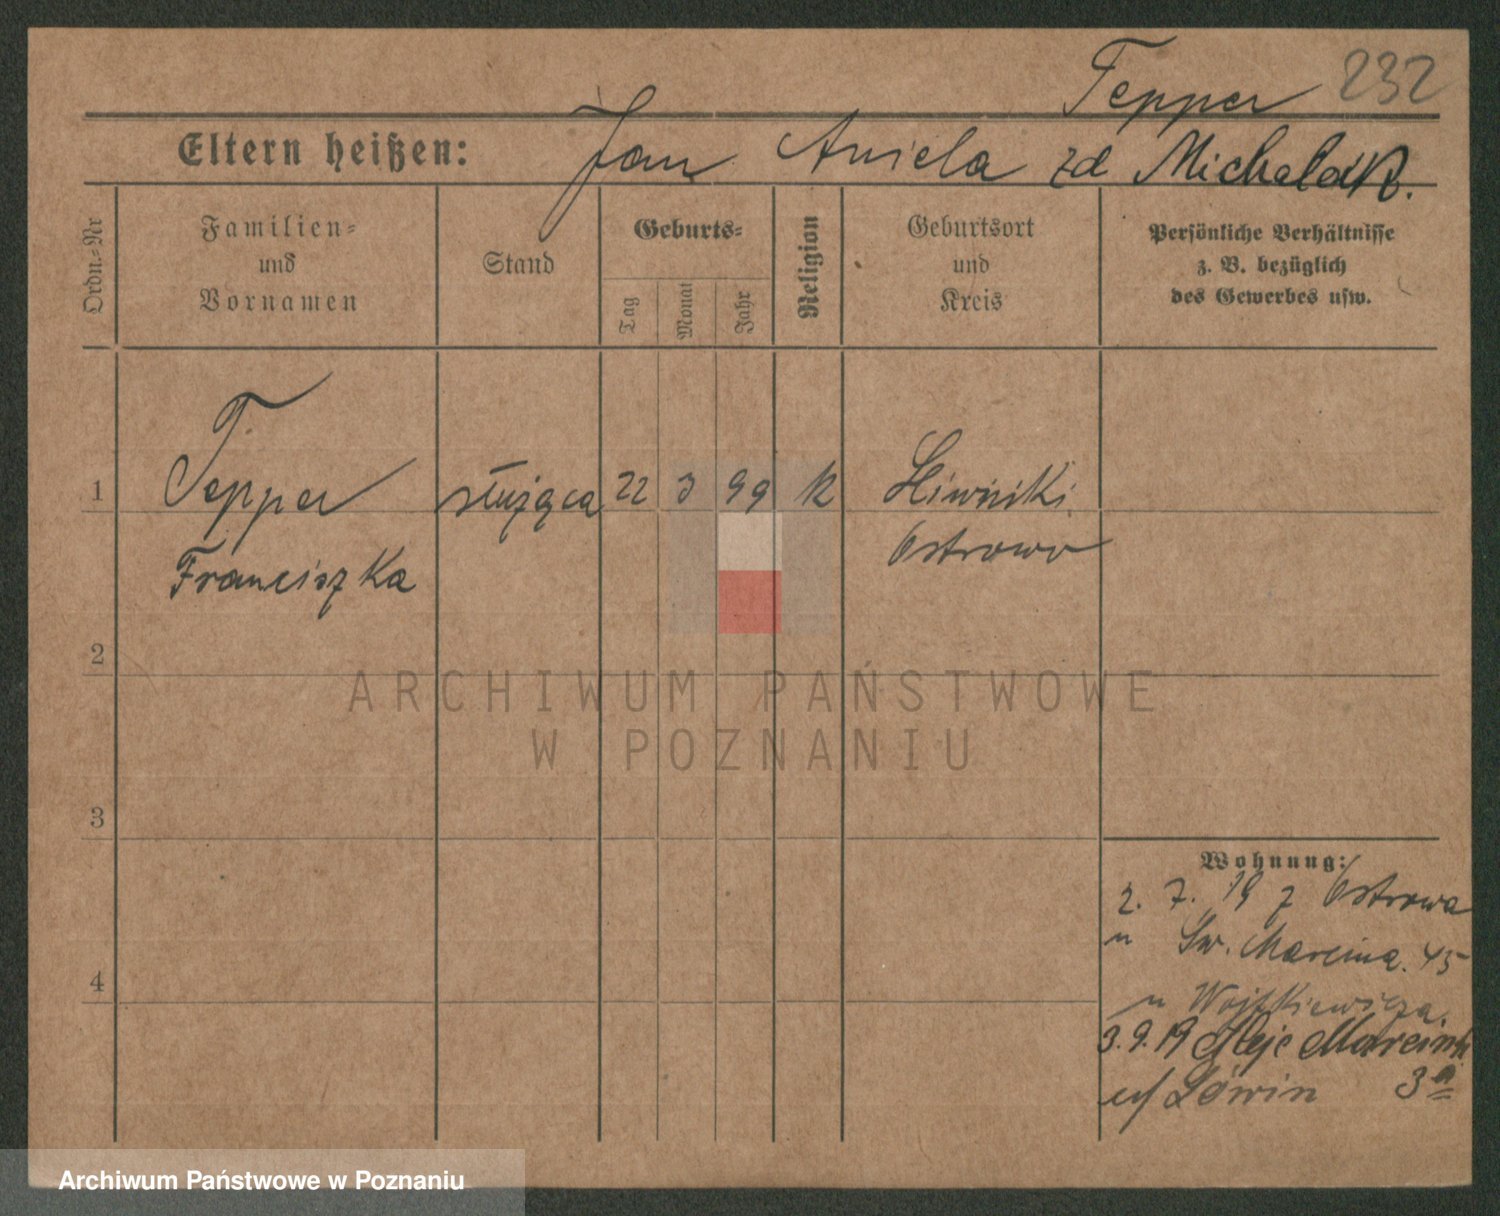 Tepper 232
Eltern heißen: Jan Aniela zd Michalak.
Ordn.-Nr
Familien-
und
Vornamen
Stand
Geburts-
Tag
Monat
Jahr
Religion
Geburtsort
und
Kreis
Persönliche Verhältnisse
z. B. bezüglich
des Gewerbes usw.
1 Tepper służąca 22 3 99 k Śliwniki
Franciszka Ostrowo
2
3
4
Wohnung:
2. 7. 19 z Ostrowa
u Św. Marcina. 45
u Wojtkiewicza.
3.9.19 Aleje Marcink
u/ Löwin 3a
ARCHIWUM PAŃSTWOWE
W POZNANIU
Archiwum Państwowe w Poznaniu